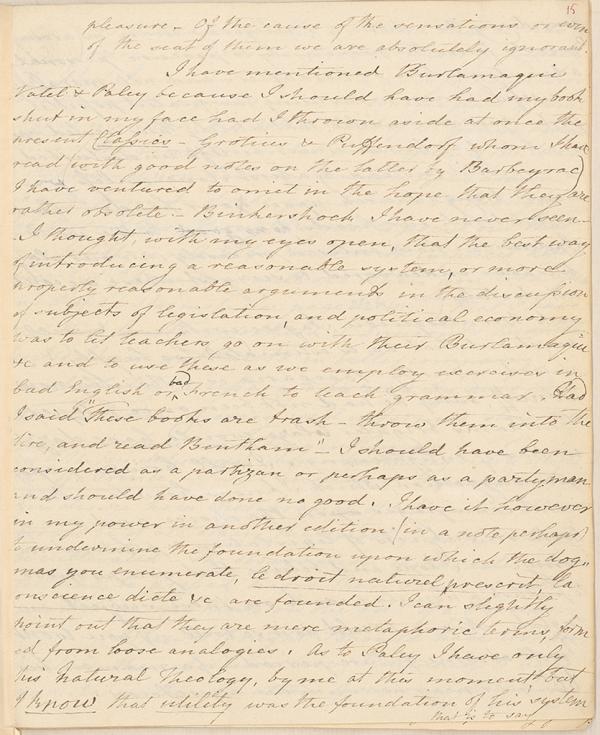 15
pleasure – Of the cause of the sensations or even
of the seat of them we are absolutely ignorant.
I have mentioned Burlamaqui
Vatel & Paley because I should have had my book
shut in my face had I thrown aside at once the
present Classics – Grotius & Puffendorf whom I have
read (with good notes on the latter by Barbeyrac)
I have ventured to omet in the hope that they are
rather obsolete – Binkershoek I have never seen –
I thought, with my eyes open, that the best way
of introducing a reasonable system, or more
properly reasonable arguments in the discussion
of subjects of legislation, and political economy
was to let teachers go on with their Burlamaqui
&c and to use these as we employ exercises in
bad English or bad French to teach grammar. Had
I said "These books are trash – throw them into the
fire, and read Bentham" – I should have been
considered as a partizan or perhaps as a party man
and should have done no good. I have it however
in my power in another edition (in a note perhaps)
to undermine the foundation upon which the dog-
mas you enumerate, le droit naturel prescrit, la
conscience dicte &c are founded. I can slightly
point out that they are mere metaphoric terms form
ed from loose analogies. As to Paley I have only
his Natural Theology, by me at this moment but
I know that utility was the foundation of his system
that is to say